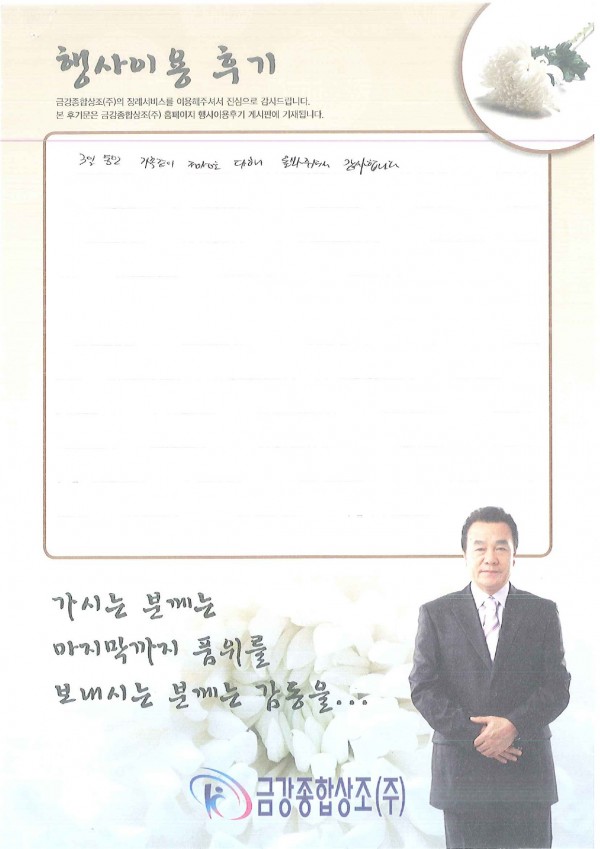 행사이용 후기
금강종합상조(주)의 장례서비스를 이용해주셔서 진심으로 감사드립니다.
본 후기문은 금강종합상조(주) 홈페이지 행사이용후기 게시판에 기재됩니다.
3일 동안 가족같이 최선을 다해 돌봐주셔서 감사합니다
가시는 분께는
마지막까지 품위를
보내시는 분께는 감동을...
금강종합상조(주)